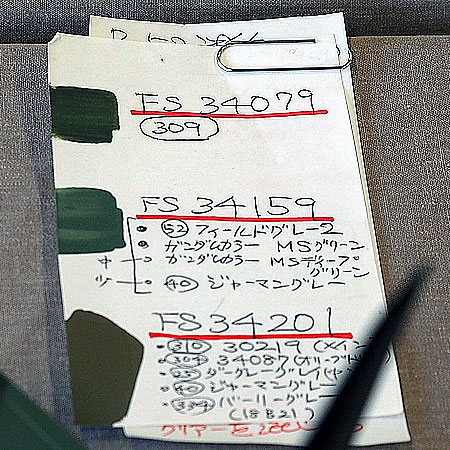 FS 34079
309
FS 34159
52 フィールドグレー2
ガンダムカラー MSグリーン
ガンダムカラー MSディープ
グリーン
40 ジャーマングレー
FS 34201
310 30219 (メイン
304 34087 (オリーブド
ダークグレイ
40 ジャーマングレー
339 バーリーグレー
(18B21)
クリアー